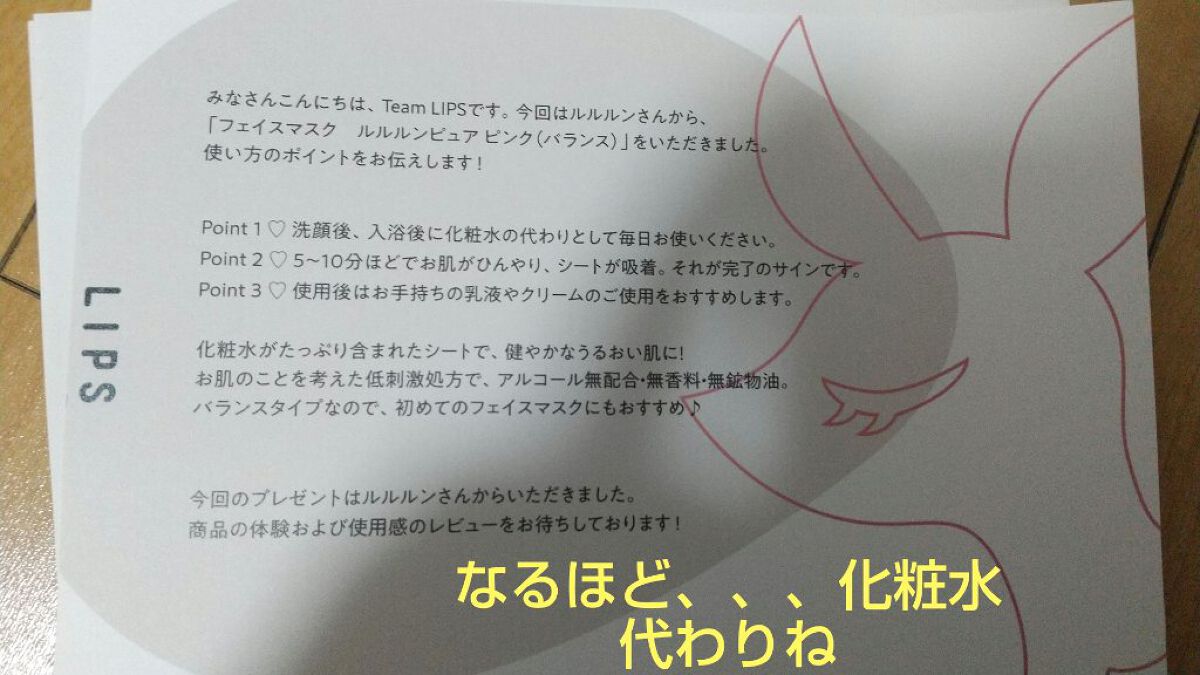 みなさんこんにちは、Team LIPSです。今回はルルルンさんから、
「フェイスマスク　ルルルンピュア ピンク（バランス）」をいただきました。
使い方のポイントをお伝えします！
Point 1 ♡ 洗顔後、入浴後に化粧水の代わりとして毎日お使いください。
Point 2 ♡ 5~10分ほどでお肌がひんやり、シートが吸着。それが完了のサインです。
Point 3 ♡ 使用後はお手持ちの乳液やクリームのご使用をおすすめします。
LIPS
化粧水がたっぷり含まれたシートで、健やかなうるおい肌に！
お肌のことを考えた低刺激処方で、アルコール無配合・無香料・無鉱物油。
バランスタイプなので、初めてのフェイスマスクにもおすすめ♪
今回のプレゼントはルルルンさんからいただきました。
商品の体験および使用感のレビューをお待ちしております！
なるほど、、、化粧水
代わりね